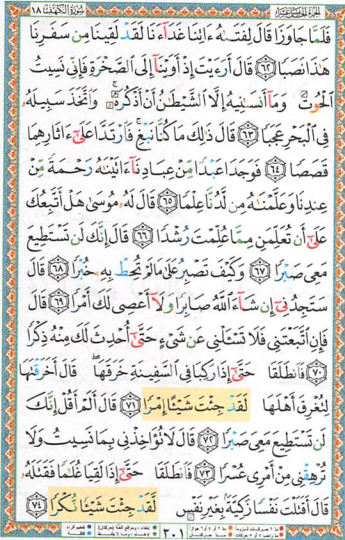 الجزء الخامس عشر
سورة الكهف ١٨
فَلَمَّا جَاوَزَا قَالَ لِفَتَىٰهُ ءَاتِنَا غَدَآءَنَا لَقَدۡ لَقِينَا مِن سَفَرِنَا
هَٰذَا نَصَبٗا ٦٢ قَالَ أَرَءَيۡتَ إِذۡ أَوَيۡنَآ إِلَى ٱلصَّخۡرَةِ فَإِنِّي نَسِيتُ
ٱلۡحُوتَ وَمَآ أَنسَىٰنِيهُ إِلَّا ٱلشَّيۡطَٰنُ أَنۡ أَذۡكُرَهُۥۚ وَٱتَّخَذَ سَبِيلَهُۥ
فِي ٱلۡبَحۡرِ عَجَبٗا ٦٣ قَالَ ذَٰلِكَ مَا كُنَّا نَبۡغِۚ فَٱرۡتَدَّا عَلَىٰٓ ءَاثَارِهِمَا
قَصَصٗا ٦٤ فَوَجَدَا عَبۡدٗا مِّنۡ عِبَادِنَآ ءَاتَيۡنَٰهُ رَحۡمَةٗ مِّنۡ
عِندِنَا وَعَلَّمۡنَٰهُ مِن لَّدُنَّا عِلۡمٗا ٦٥ قَالَ لَهُۥ مُوسَىٰ هَلۡ أَتَّبِعُكَ
عَلَىٰٓ أَن تُعَلِّمَنِ مِمَّا عُلِّمۡتَ رُشۡدٗا ٦٦ قَالَ إِنَّكَ لَن تَسۡتَطِيعَ
مَعِيَ صَبۡرٗا ٦٧ وَكَيۡفَ تَصۡبِرُ عَلَىٰ مَا لَمۡ تُحِطۡ بِهِۦ خُبۡرٗا ٦٨ قَالَ
سَتَجِدُنِيٓ إِن شَآءَ ٱللَّهُ صَابِرٗا وَلَآ أَعۡصِي لَكَ أَمۡرٗا ٦٩ قَالَ
فَإِنِ ٱتَّبَعۡتَنِي فَلَا تَسۡـَٔلۡنِي عَن شَيۡءٍ حَتَّىٰٓ أُحۡدِثَ لَكَ مِنۡهُ ذِكۡرٗا
٧٠ فَٱنطَلَقَا حَتَّىٰٓ إِذَا رَكِبَا فِي ٱلسَّفِينَةِ خَرَقَهَاۖ قَالَ أَخَرَقۡتَهَا
لِتُغۡرِقَ أَهۡلَهَا لَقَدۡ جِئۡتَ شَيۡـًٔا إِمۡرٗا ٧١ قَالَ أَلَمۡ أَقُلۡ إِنَّكَ
لَن تَسۡتَطِيعَ مَعِيَ صَبۡرٗا ٧٢ قَالَ لَا تُؤَاخِذۡنِي بِمَا نَسِيتُ وَلَا
تُرۡهِقۡنِي مِنۡ أَمۡرِي عُسۡرٗا ٧٣ فَٱنطَلَقَا حَتَّىٰٓ إِذَا لَقِيَا غُلَٰمٗا فَقَتَلَهُۥ
قَالَ أَقَتَلۡتَ نَفۡسٗا زَكِيَّةَۢ بِغَيۡرِ نَفۡسٖ لَّقَدۡ جِئۡتَ شَيۡـٔٗا نُّكۡرٗا ٧٤
٣٠١